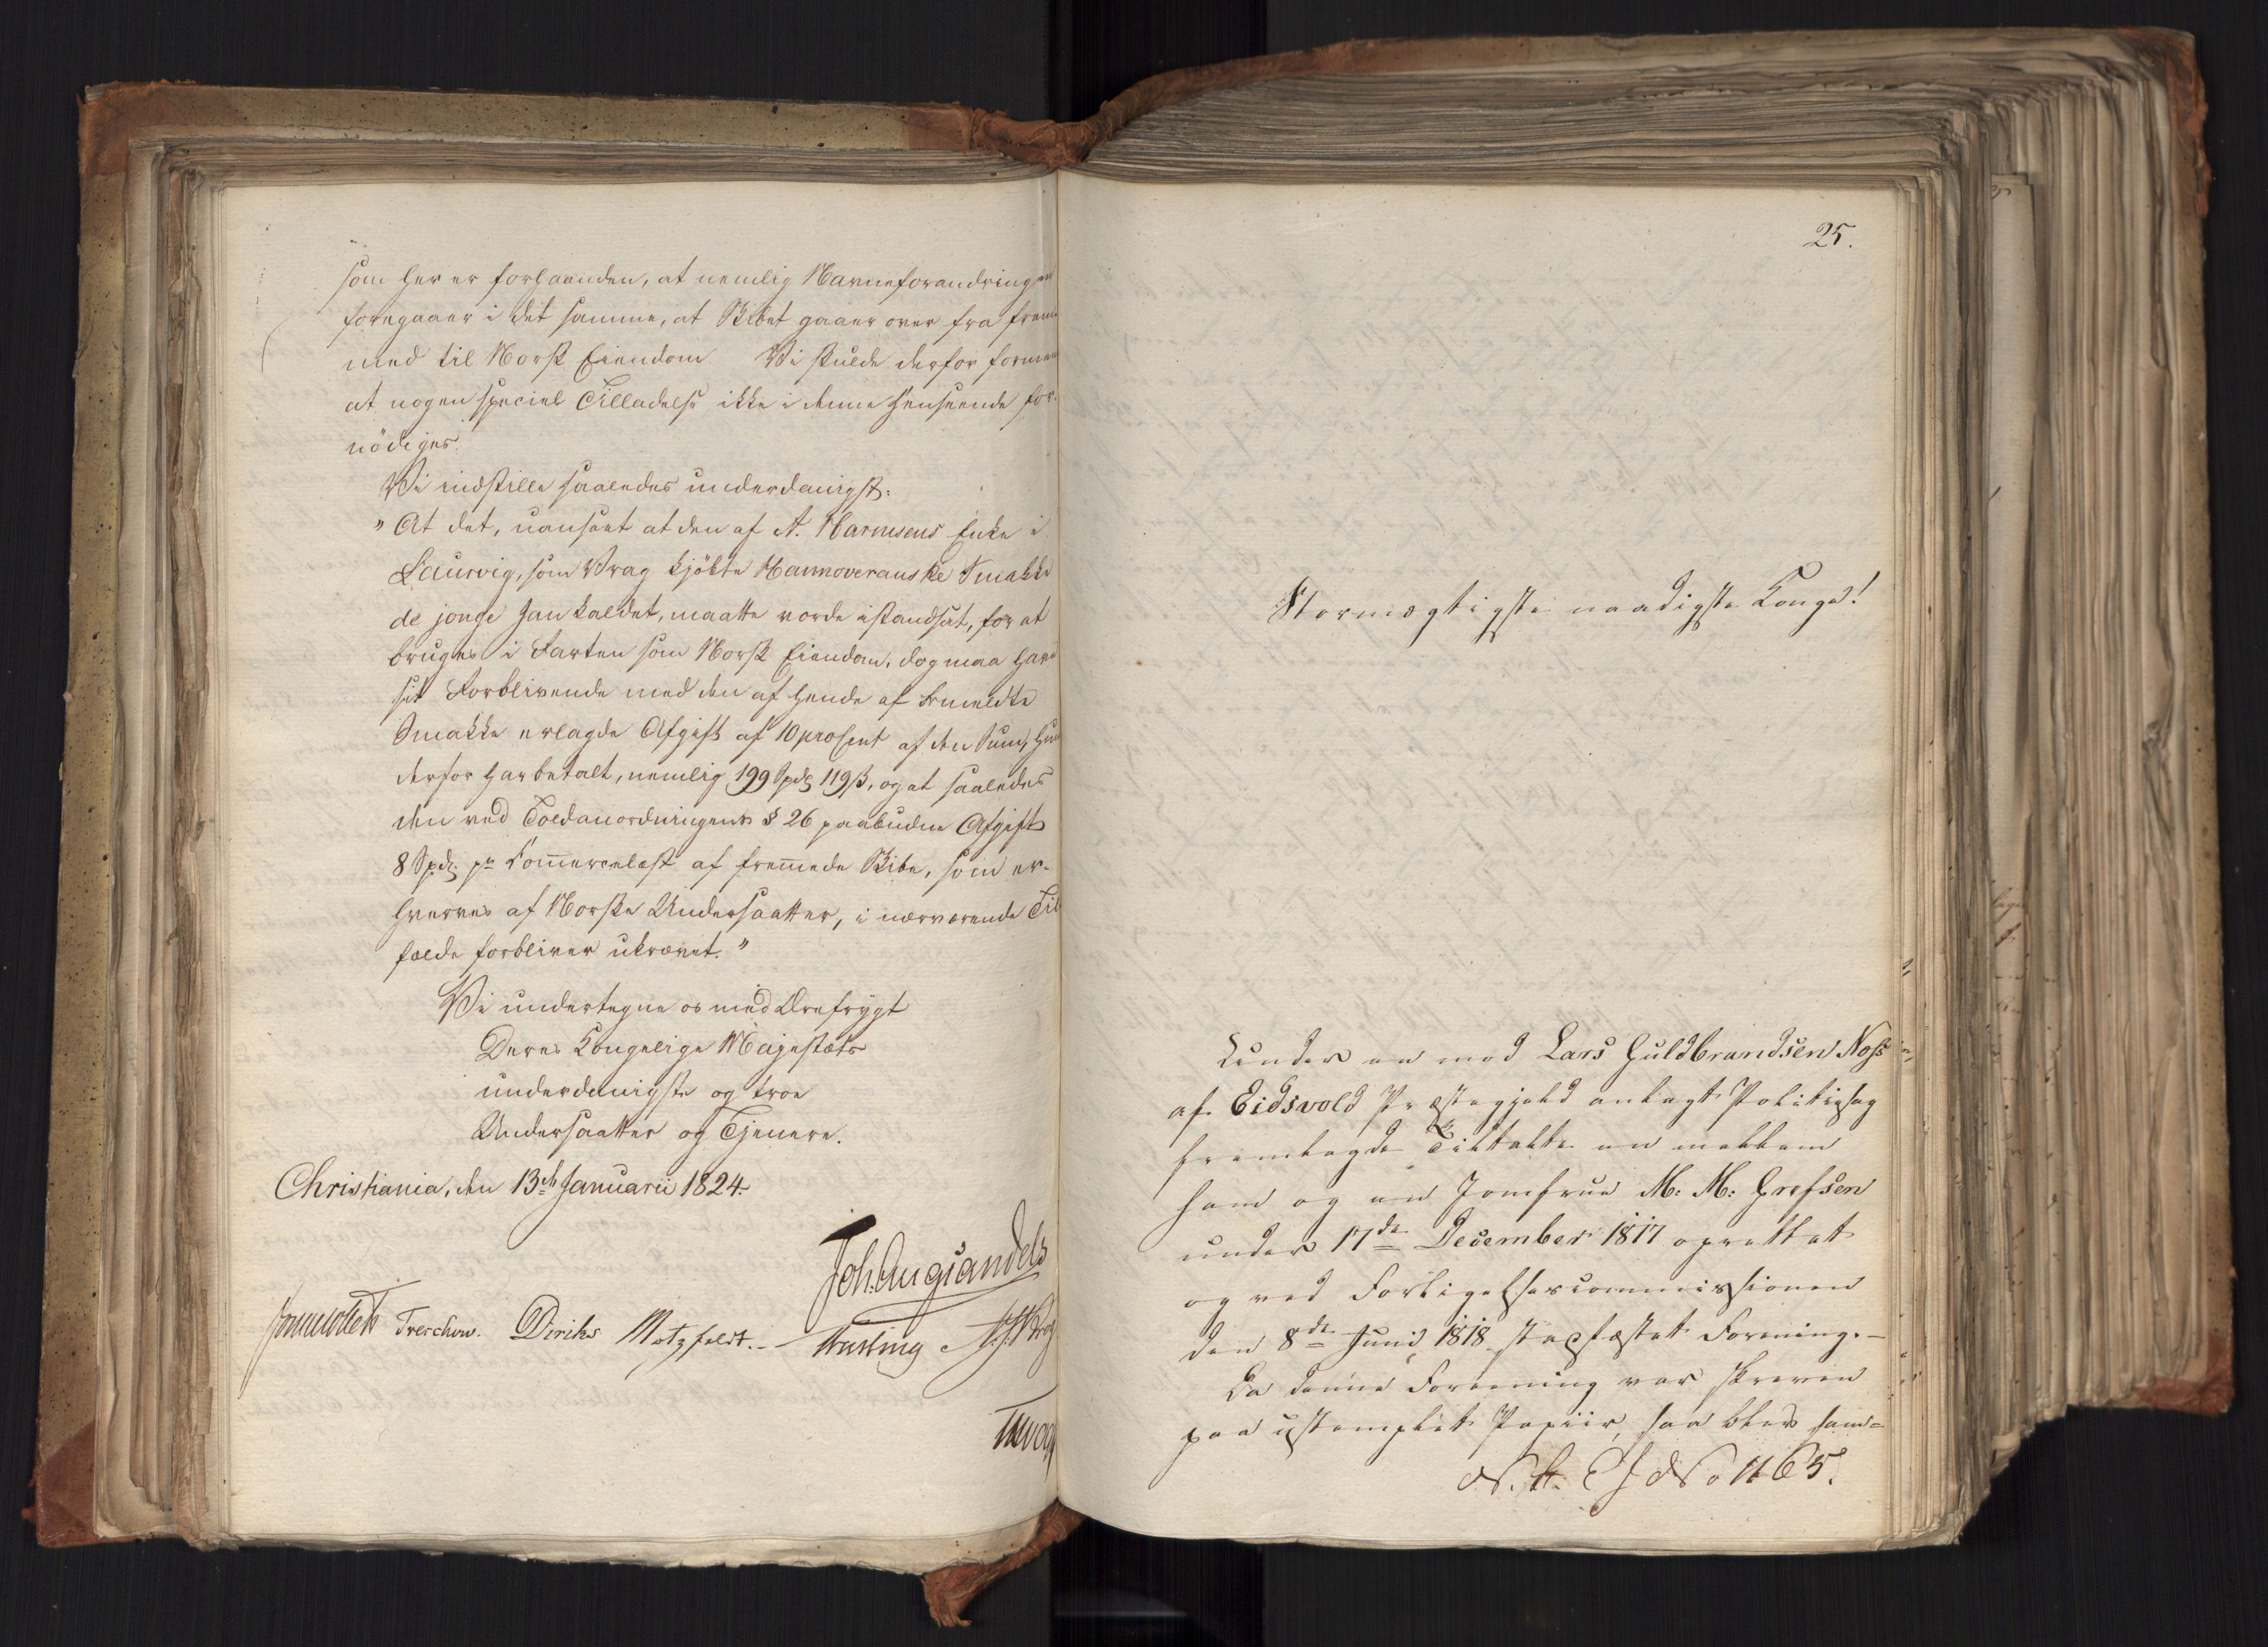 som her er forhaanden, at nemlig Navneforandringen
foregaaer i det samme, at Skibet gaaer over fra frem¬
med til Norsk Eiendom. Vi skulde derfor formene
at nogen speciel Tilladelse ikke i denne Henseende for¬
nödiges.
Vi indstille saaledes underdanigst:
"At det, uanseet at den af A. Narvesens Enke i
Laurvig, som Vrag kjöbte Hannoveranske Smakke
de jonge Jan kaldet, maatte vorde istandsat, for at
bruges i Farten som Norsk Eiendom, dog maa have
sit Forblivende med den af hende af bemeldte
Smakke erlagde Afgift af 10 procent af den Sum, hun
derfor har betalt, nemlig 199 Spd 119 ß, og at saaledes
den ved Toldanordningens § 26 paabudne Afgift
8 Spd. pr Com̅ercelæst af frem̅ede Skibe, som er¬
hverves af Norske Undersaatter, i nærværende Til¬
fælde forbliver ukrævet."
Vi undertegne os med Ærefrygt
Deres Kongelige Majestæts
underdanigste og troe
Undersaatter og Tjenere.
Christiania, den 13de Januarii 1824.
Joh. Aug. Sandels
Sommerfeldt Treschow. Diriks Motzfeldt. Fasting J. H. Krog
25.
Stormægtigste naadigste Konge!
Under en mod Lars Guldbrandsen Noss
af Eidsvold Præstegjeld anlagt Politiesag
fremlagde Tiltalte en mellem
ham og en Jomfrue M: M: Grefsen
under 17de December 1817 oprettet
og ved Forligelsescommissionen
den 8de Junii 1818 stadfæstet Forening.—
Da denne Forening var skreven
paa ustemplet Papiir, saa blev sam=
No 1165.